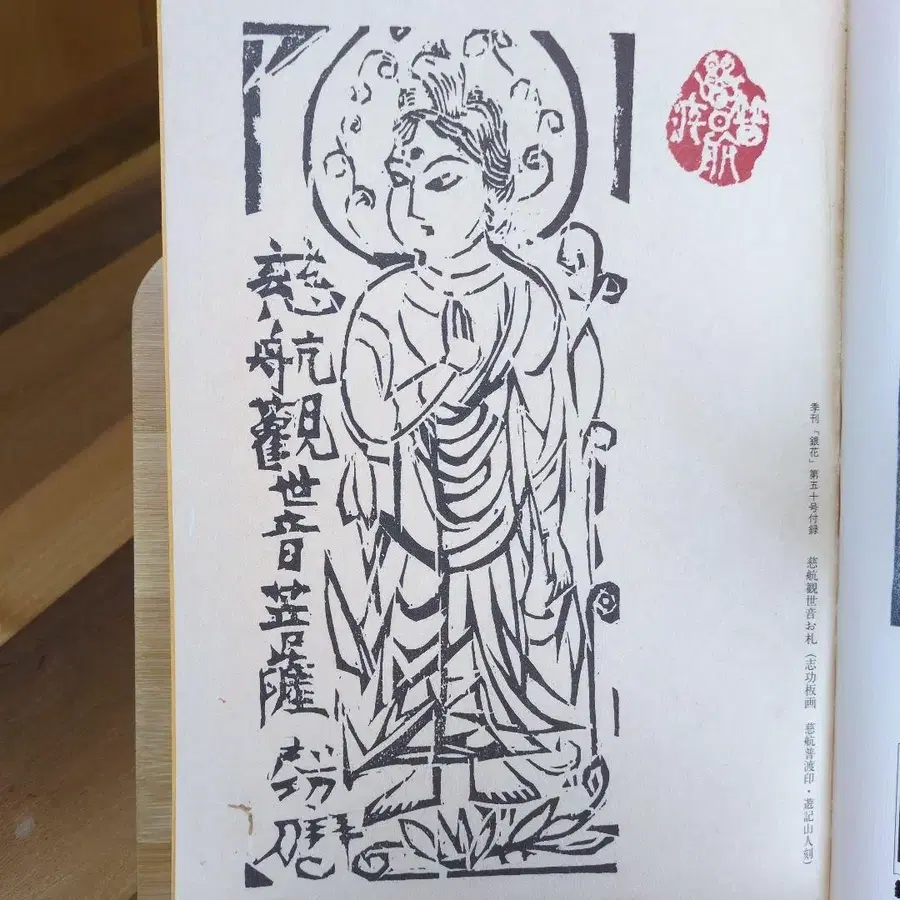 季刊「銀花」第五十号付録　慈航観世音お札（志功板画　慈航普渡印・遊記山人刻）
慈航觀世音菩薩